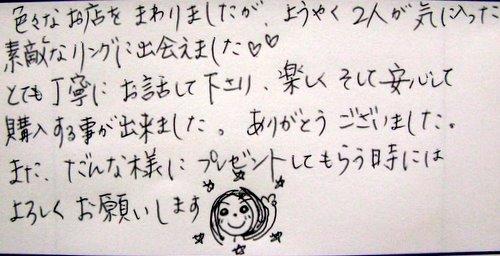 色々なお店を まわりましたが、ようやく 2人が 気に入った
素敵なリングに出会えました♡♡
とても丁寧に お話して下さり、楽しく そして 安心して
購入する事が出来ました。 ありがとう ございました。
また、だんな様に プレゼントしてもらう時には
よろしく お願いします